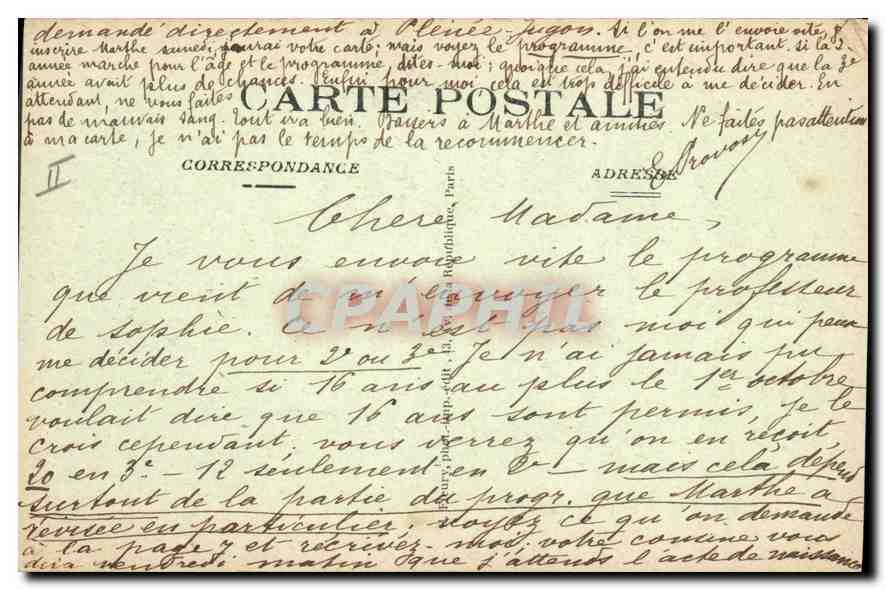 demandé directement à Plénée-Jugon. Si l'on me l'envoie vite, &
inscrire Marthe samedi, j'aurai votre carte; mais voyez le programme, c'est important. si la 2e
année marche pour l'âge et le programme, dites-moi; quoique cela, j'ai entendu dire que la 3e
année avait plus de chances. Enfin pour moi, cela est trop difficile à me décider. En
attendant, ne vous faites
CARTE POSTALE
pas de mauvais sang. Tout ira bien. Baisers à Marthe et amitiés. Ne faites pas attention
à ma carte, je n'ai pas le temps de la recommencer.
E. Provost
CORRESPONDANCE
ADRESSE
II
Chere Madame,
Je vous envoie vite le programme
que vient de m'envoyer le professeur
de sophie. Ce n'est pas moi qui peux
me décider pour 2e ou 3e. Je n'ai jamais pu
comprendre si 16 ans au plus le 1er octobre
voulait dire que 16 ans sont permis, je le
crois cependant. vous verrez qu'on en reçoit
20 en 3e - 12 seulement en 2e - mais cela dépend
surtout de la partie du progr. que Marthe a
révisée en particulier. voyez ce qu'on demande
à la page 7 et récrivez-moi. votre cousine vous
dira vendredi matin que j'attends l'acte de naissance
Fleury, phot.-imp.-édit., 13, de la République, Paris
CPAPHIL